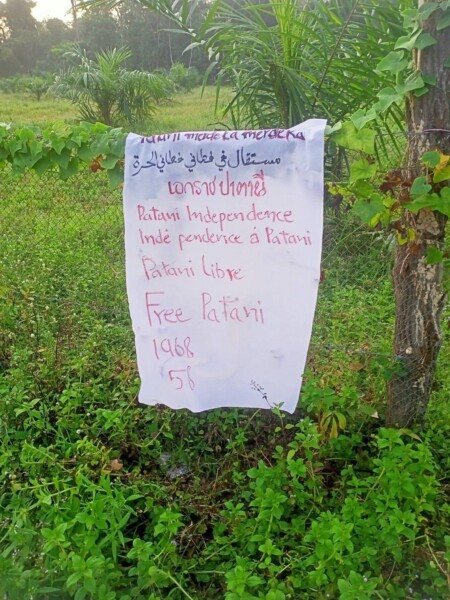 merdeka
مستقال في فطاني فطاني الحرة
เอกราช ปาตานี
Patani Independence
Inde pendence á Patani
Patani Libre
Free Patani
1968
58